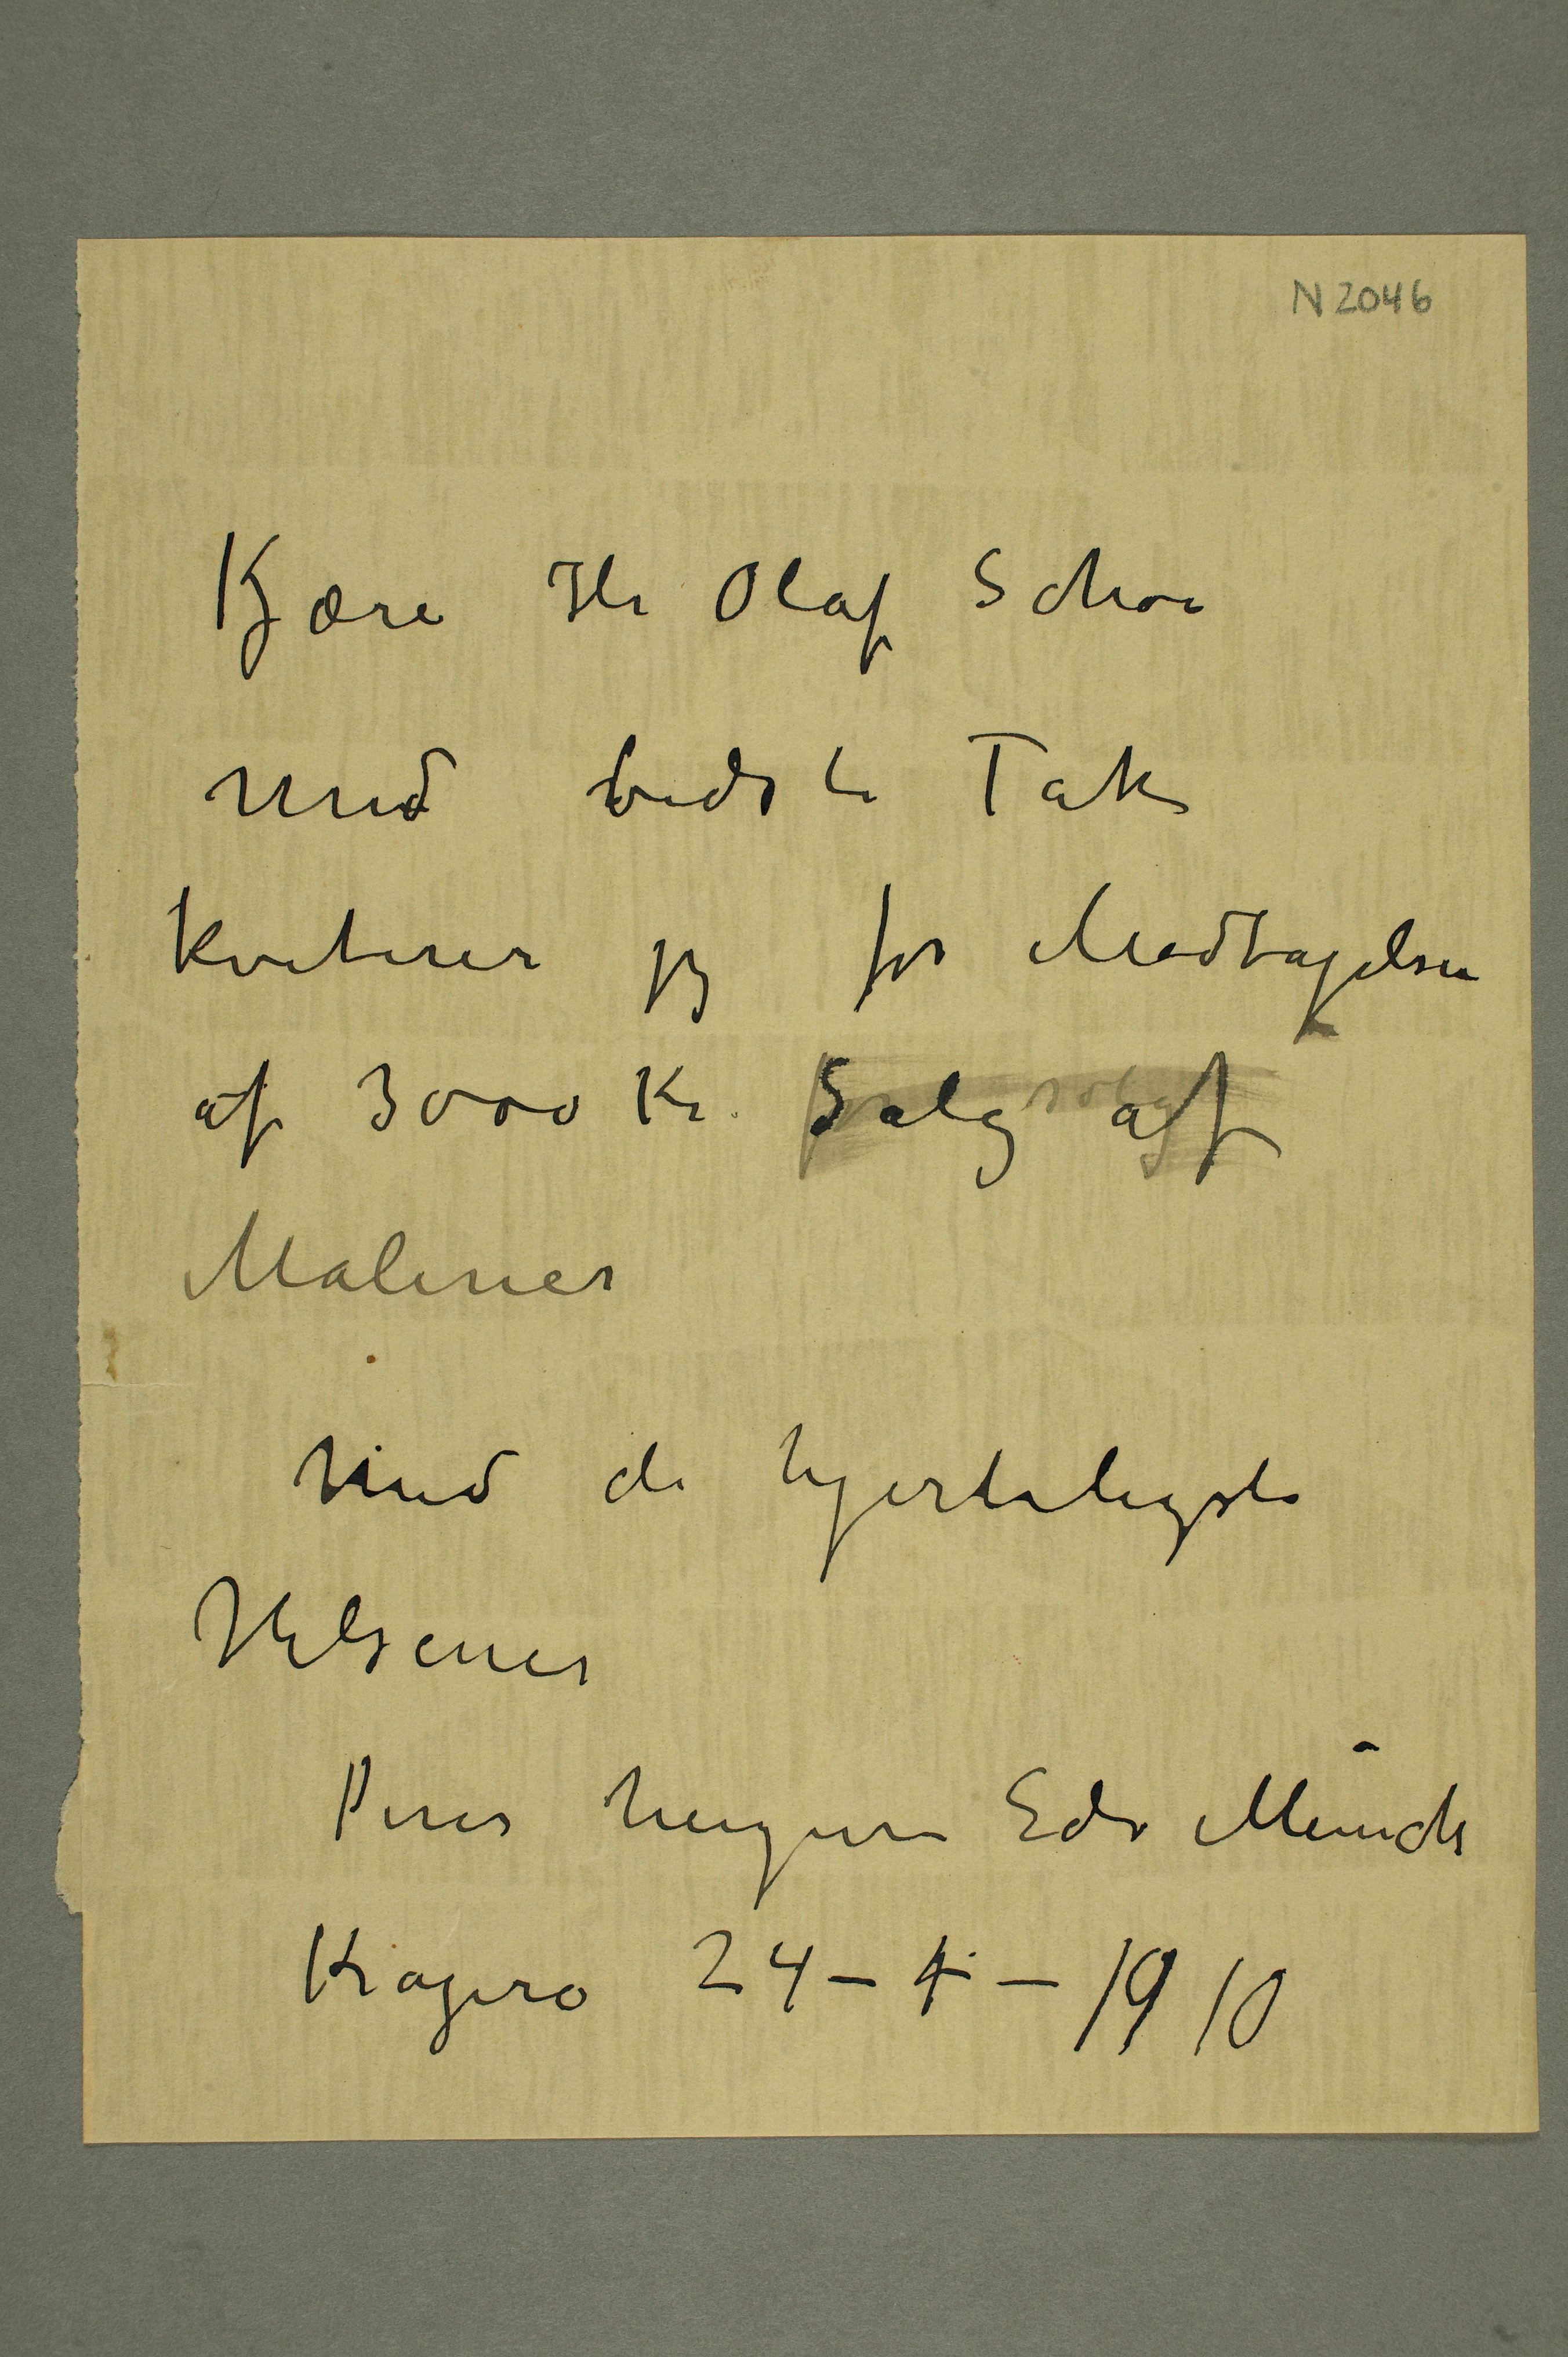 N 2046
Kjære Hr Olaf Schou
Med bedste Tak
kviterer jeg for Modtagelsen
af 3000 Kr. Salg af
Malerier
Med de hjerteligste
Hilsener
Deres hengivne Edv Munch
Kragerø 24 – 4 – 1910